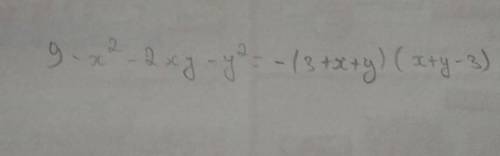 9 - x² - 2xy - y² = -(3+x+y)(x+y-3)